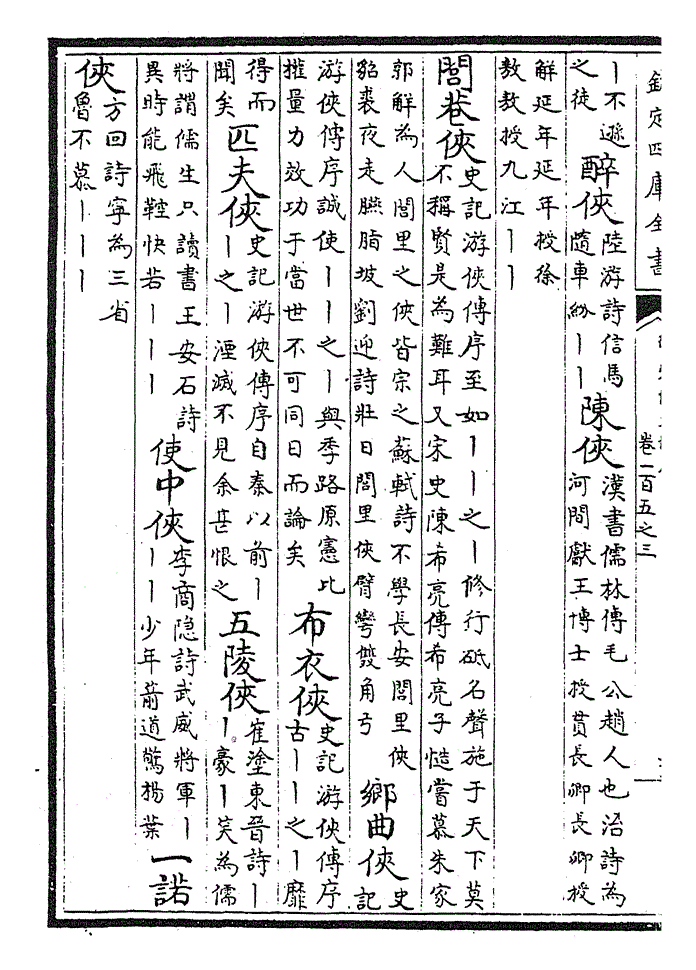 欽定四庫全書
卷二百五之三
丨不遜
之徒
醉俠
陸游詩信馬
隨車紛丨丨
陳俠
漢書儒林傳毛公趙人也治詩為
河間獻王博士授貫長卿長卿授
解延年延年授徐
敖敖授九江丨丨
閭巷俠
史記游俠傳序至如丨丨之丨修行砥名聲施于天下莫
不稱賢是為難耳又宋史陳希亮傳希亮子慥嘗慕朱家
郭解為人閭里之俠皆宗之蘇軾詩不學長安閭里俠
貂裘夜走臙脂坡劉迎詩壯日閭里俠臂彎雙角弓
鄉曲俠
史
記
游俠傳序誠使丨丨之丨與季路原憲比
搉量力效功于當世不可同日而論矣
布衣俠
史記游俠傳序
古丨丨之丨靡
得而
聞矣
匹夫俠
史記游俠傳序自秦以前丨
丨之丨湮滅不見余甚恨之
五陵俠
崔塗東晉詩丨
丨豪丨笑為儒
將謂儒生只讀書王安石詩
異時能飛鞚快若丨丨丨
使中俠
李商隱詩武威將軍丨
丨丨少年箭道驚楊葉
一諾
俠
方回詩寧為三省
魯不慕丨丨丨